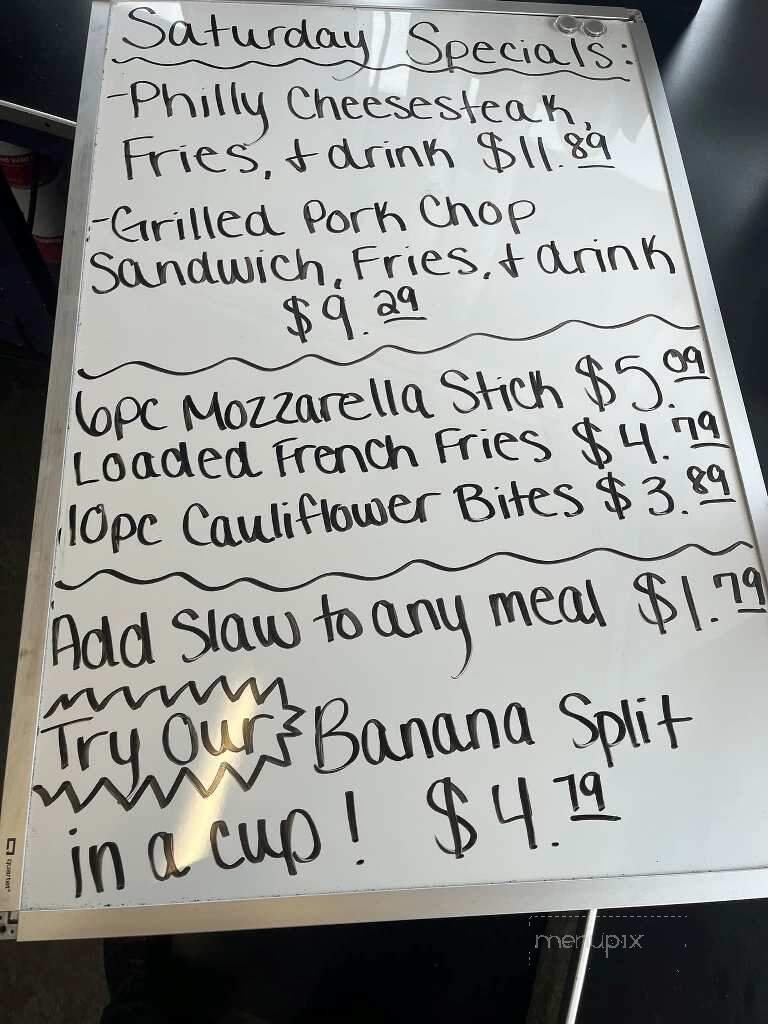 Saturday Specials:
-Philly Cheesesteak,
Fries, + drink $11.89
-Grilled Pork Chop
Sandwich, Fries, + drink
$9.29
6pc Mozzarella Stick $5.09
Loaded French Fries $4.79
10pc Cauliflower Bites $3.89
Add Slaw to any meal $1.79
Try Our Banana Split
in a cup! $4.79
quartet
menupix